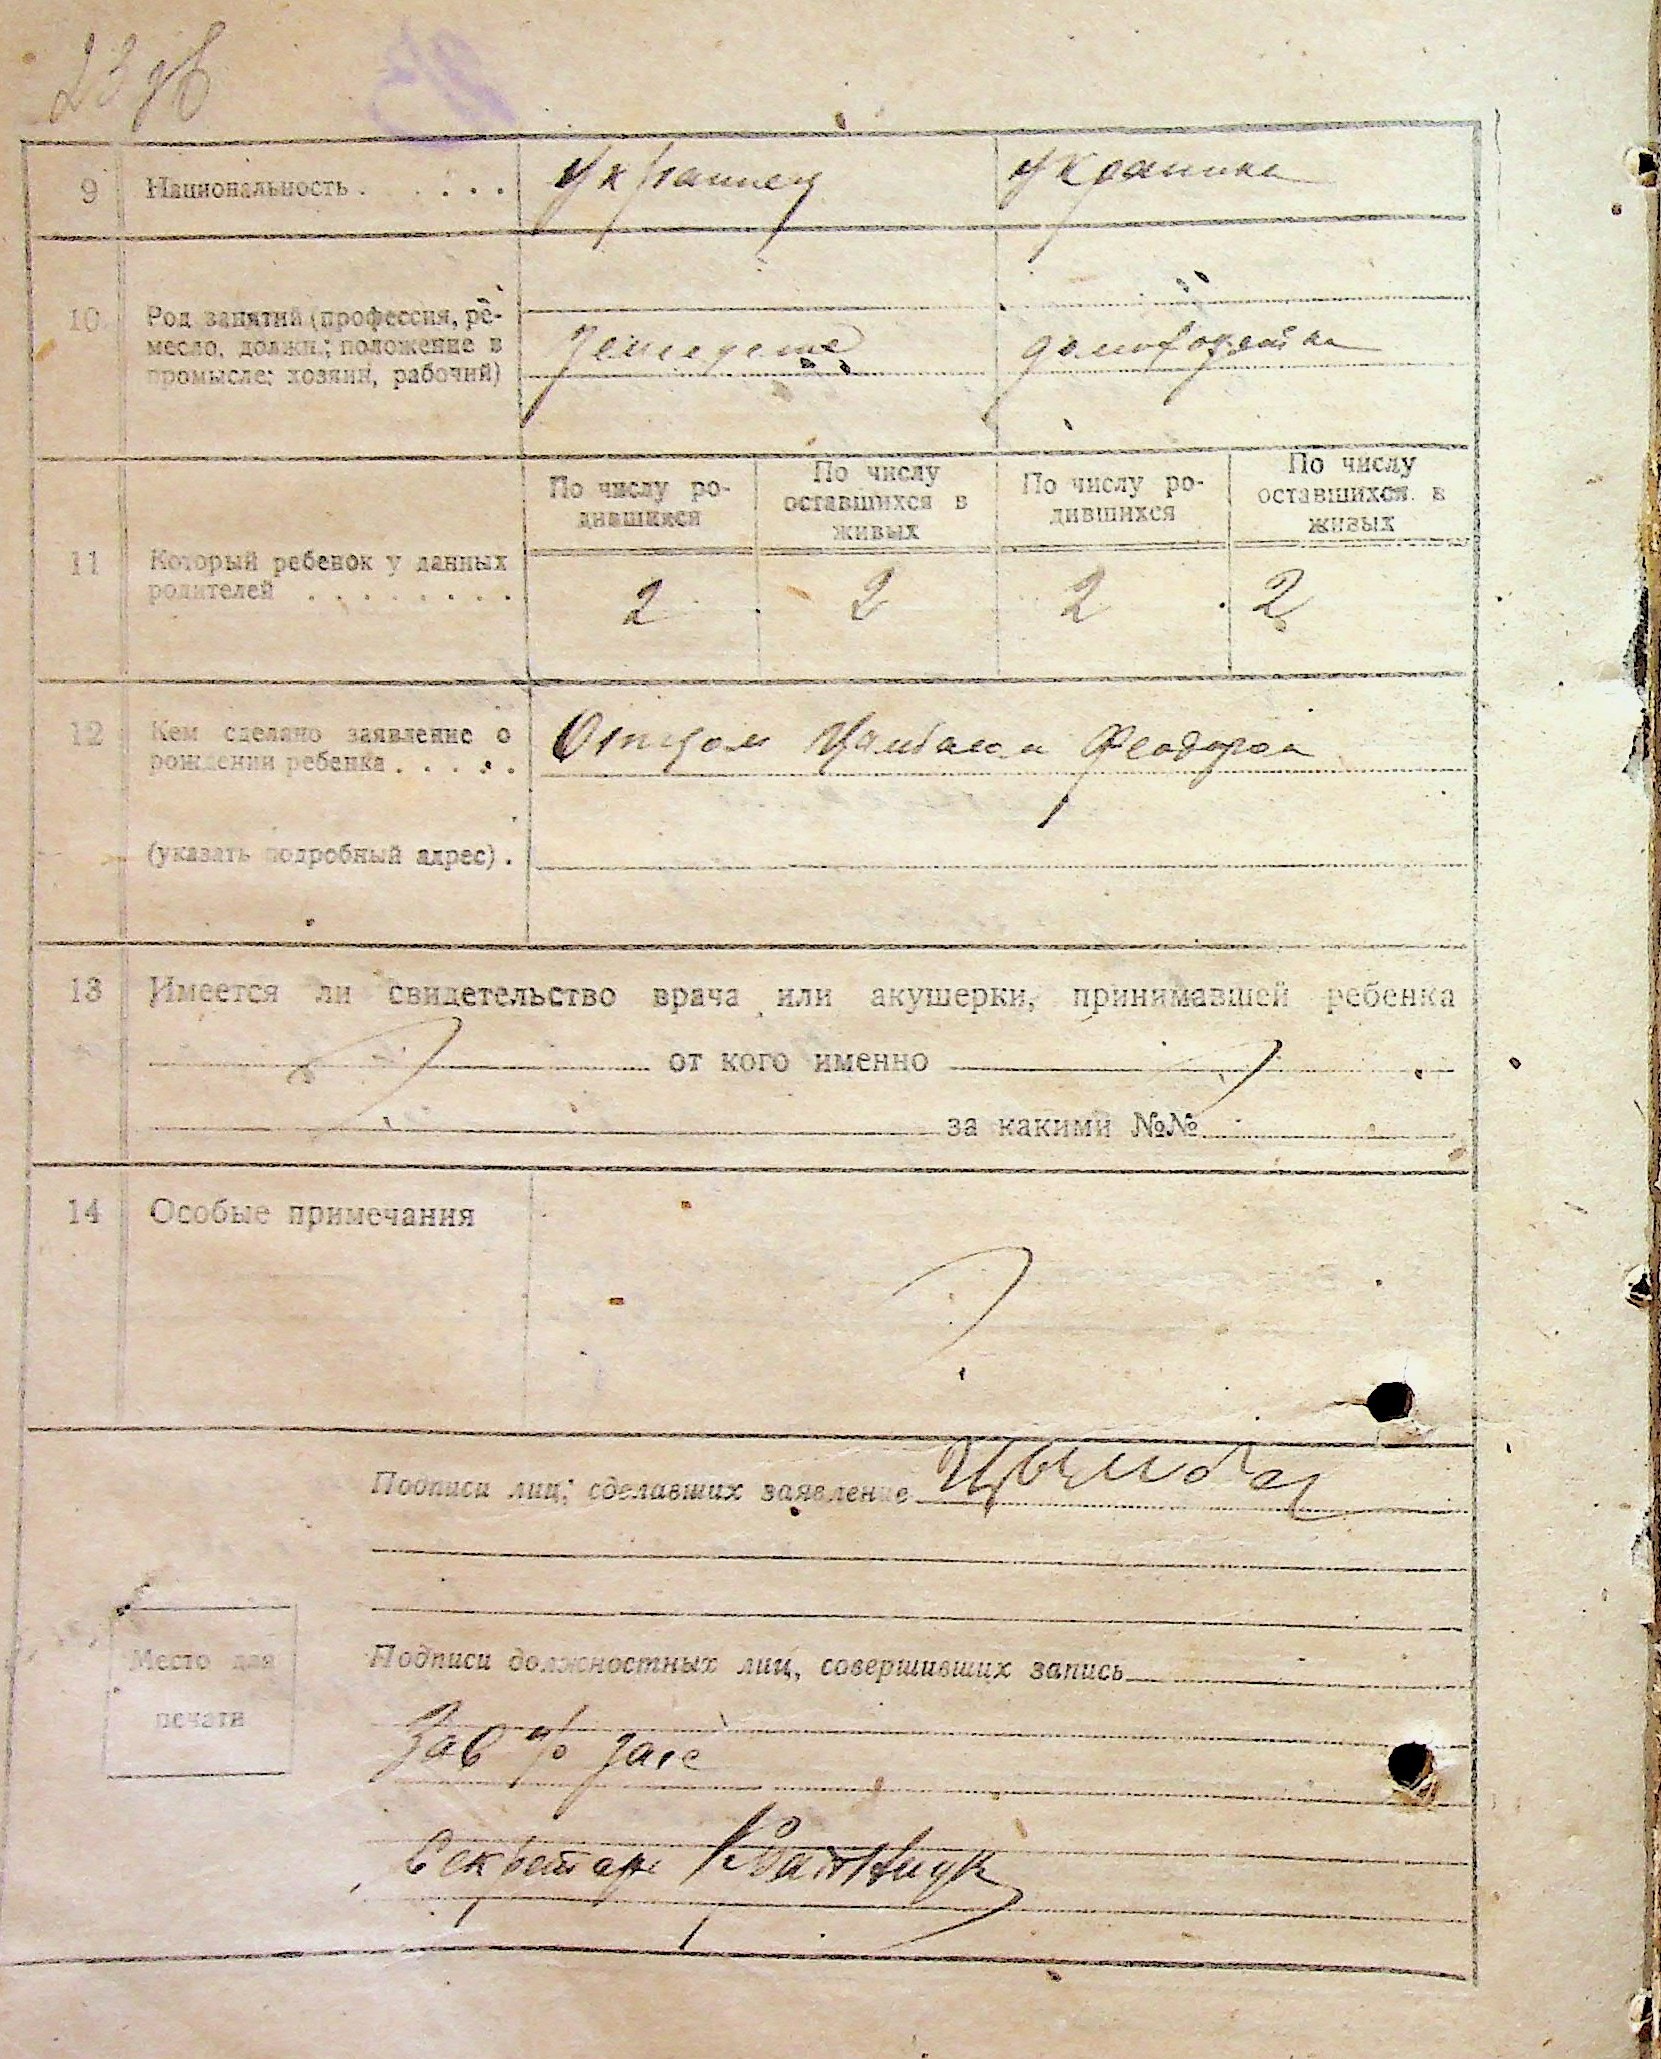 23
9 Национальность . . . . . Украинец Украинка
10 Род занятий (профессия, ре-
месло, должн.; положение в
промысле: хозяин, рабочий)
домохозяйка
11 Который ребенок у данных
родителей . . . . . . . .
По числу ро-
дившихся
По числу
оставшихся в
живых
По числу ро-
дившихся
По числу
оставшихся в
живых
2 2 2 2
12 Кем сделано заявление о
рождении ребенка . . . . .
Отцом Феодором
(указать подробный адрес) .
13 Имеется ли свидетельство врача или акушерки, принимавшей ребенка
от кого именно
за какими №№
14 Особые примечания
Подписи лиц, сделавших заявление
Место для
печати
Подписи должностных лиц, совершивших запись
Зав загс
Секретарь